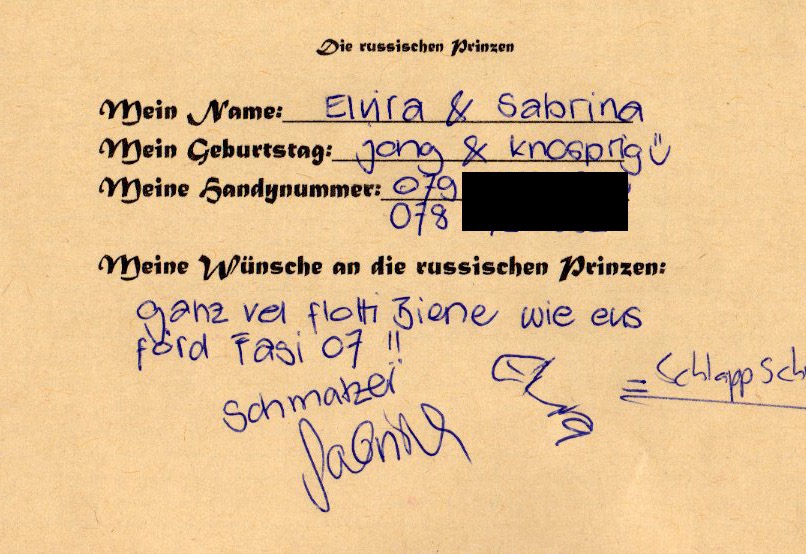 Die russischen Prinzen
Mein Name: Elvira & Sabrina
Mein Geburtstag: jong & knosprig
Meine Handynummer: 079
078
Meine Wünsche an die russischen Prinzen:
ganz vel flotti Biene wie eus
förd Fasi 07 !!
Schmatzer
= Schlapp Sch
Sabrina